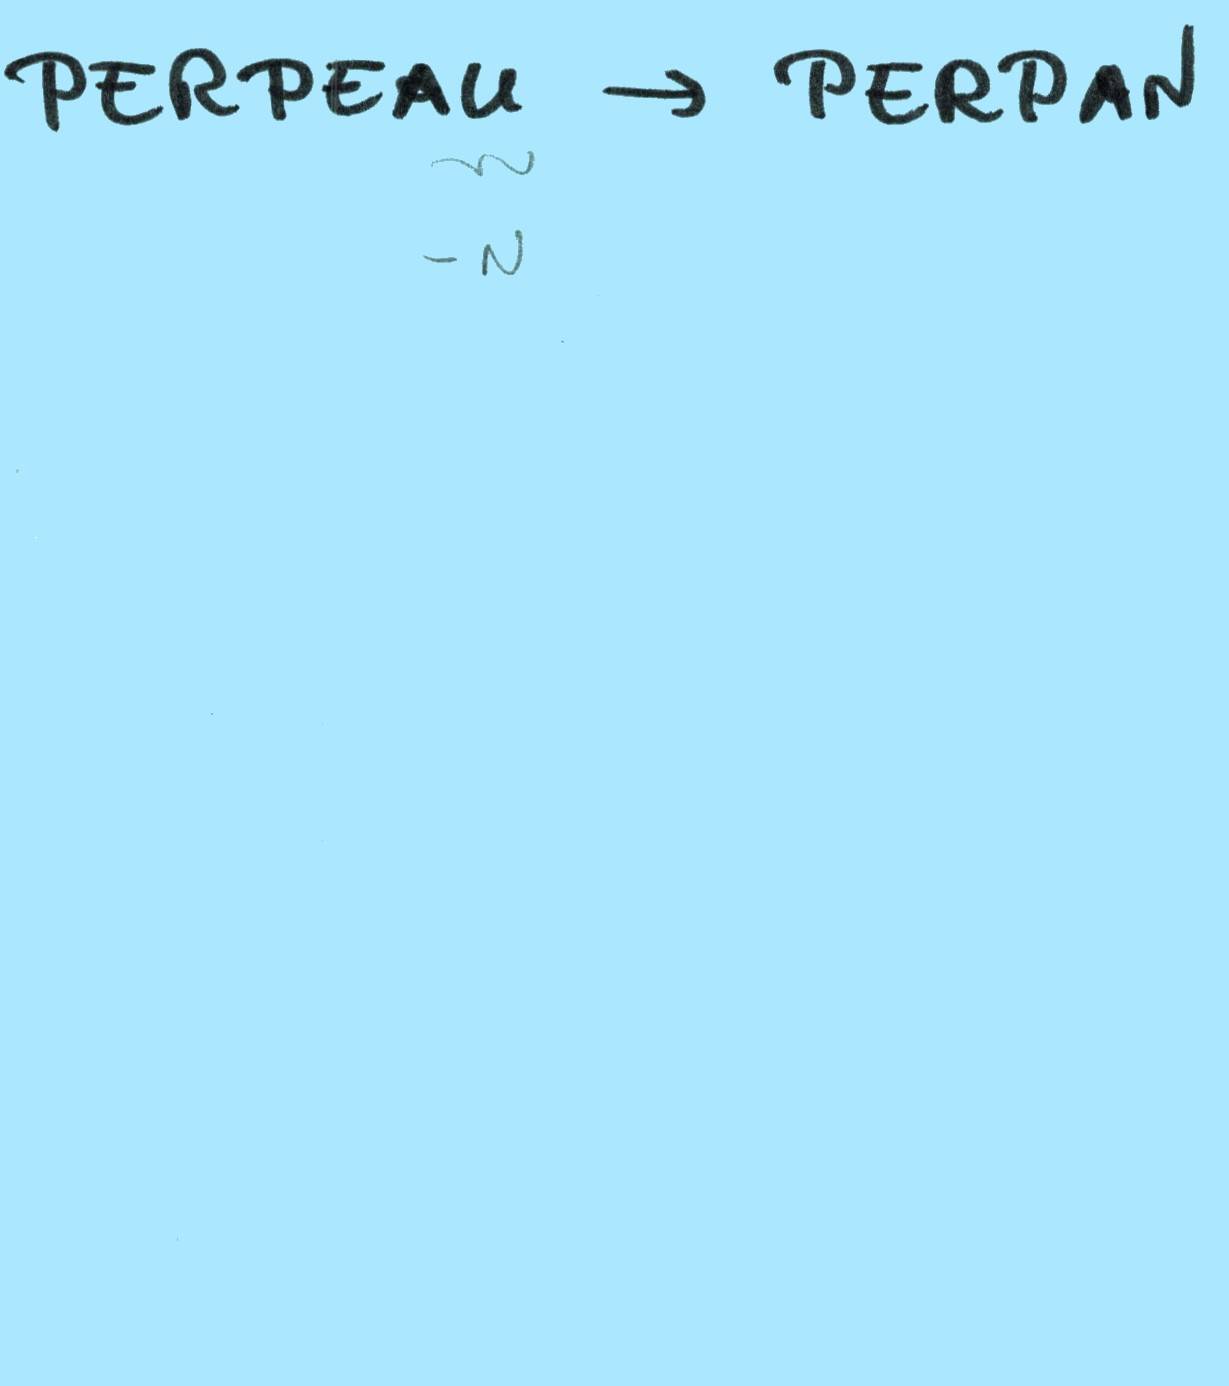 PERPEAU → PERPAN
N
- N